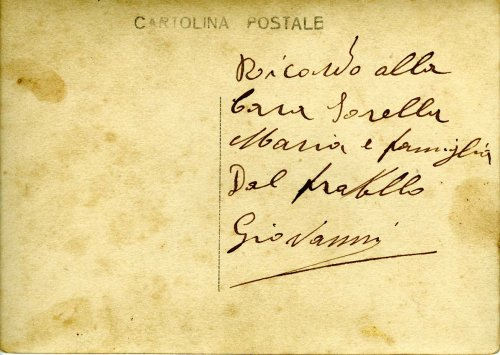 CARTOLINA POSTALE
Ricordo alla
Cara Sorella
Maria e famiglia
Dal fratello
Giovanni